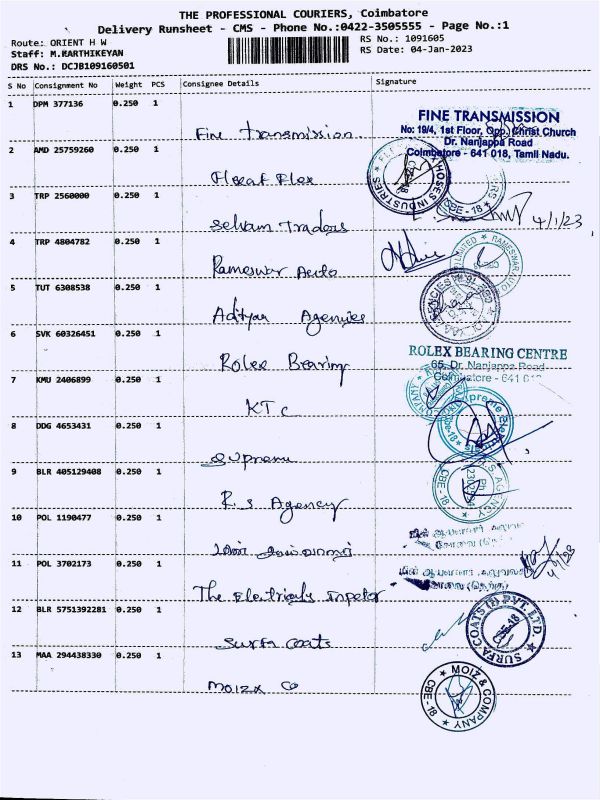 THE PROFESSIONAL COURIERS, Coimbatore
Delivery Runsheet - CMS - Phone No.:0422-3505555 - Page No.:1
Route: ORIENT H W
RS No.: 1091605
Staff: M.KARTHIKEYAN
RS Date: 04-Jan-2023
DRS No.: DCJB109160501
S No Consignment No Weight PCS Consignee Details Signature
1 DPM 377136 0.250 1
Fine transmission
FINE TRANSMISSION
No: 19/4, 1st Floor, Opp. Christ Church
Dr. Nanjappa Road
Coimbatore - 641 018, Tamil Nadu.
2 AMD 25759260 0.250 1
Flex
HOSES INDUSTRIES
CBE - 18
3 TRP 2560000 0.250 1
Selvam Traders
4/1/23
4 TRP 4804782 0.250 1
Rameswar Auto
RAMESWAR AUTO
LIMITED
5 TUT 6308538 0.250 1
Aditya Agencies
6 SVK 60326451 0.250 1
Rolex Bearing
ROLEX BEARING CENTRE
65, Dr. Nanjappa Road
Coimbatore - 641 01
7 KMU 2406899 0.250 1
KTC
COMPANY
8 DDG 4653431 0.250 1
Supreme
Supreme
9 BLR 405129408 0.250 1
R.S Agency
R.S. AGENCY
CBE - 18
10 POL 1190477 0.250 1
மின்
11 POL 3702173 0.250 1
The Inspetor
மின் ஆய்வாளர்
4/1/23
12 BLR 5751392281 0.250 1
Surfa coats
SURFA COATS (I) PVT. LTD.
CBE-18
13 MAA 294438330 0.250 1
Moiz x Co
MOIZ & COMPANY
CBE - 18